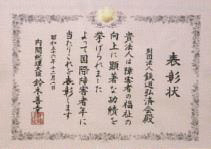 表彰状
財団法人鉄道弘済会殿
貴法人は障害者の福祉の
向上に顕著な功績を
挙げられました
よって国際障害者年に
当たりこれを表彰します
昭和五十六年十二月八日
内閣総理大臣鈴木善幸